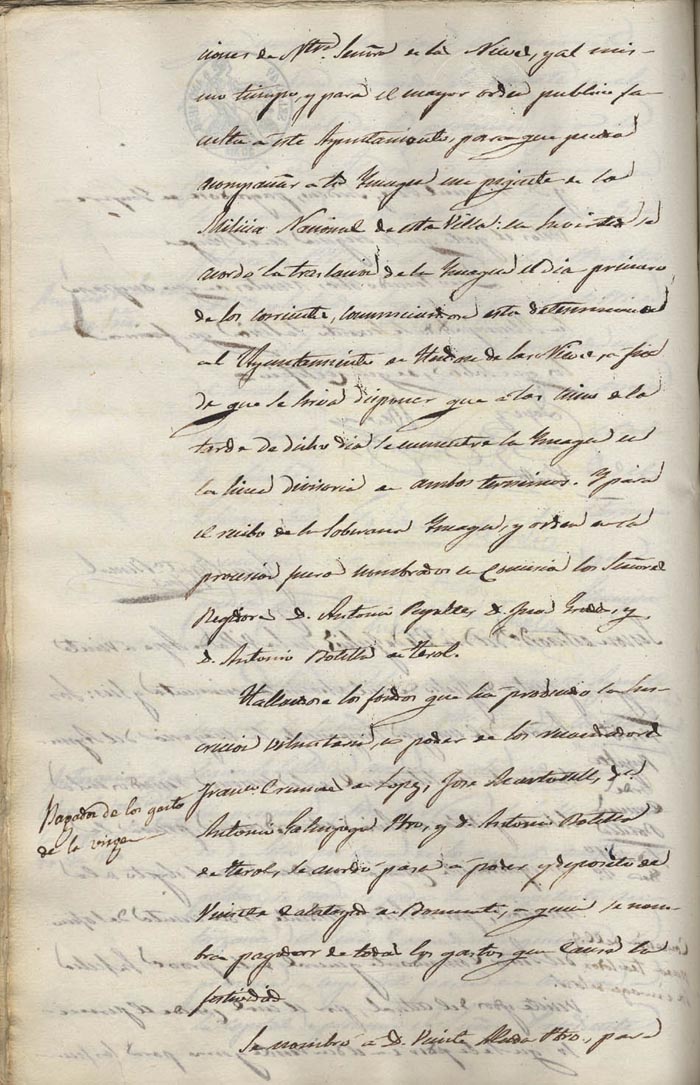 ciones de Ntra. Señora de las Nieves, y al mis-
mo tiempo, y para el mayor orden publico fa-
culta a este Ayuntamiento, para que pueda
acompañar a la Imagen un piquete de la
Milicia Nacional de esta Villa: en su vista se
acordó la traslacion de la Imagen el dia primero
de los corrientes, comunicandose esta determinacion
al Ayuntamiento de Hondon de las Nieves, a fin
de que se sirva disponer que a las cinco de la
tarde de dicho dia se encuentre la Imagen en
la linea divisoria de ambos terminos. Y para
el recibo de la Soberana Imagen, y orden en la
procesion fueron nombrados en Comision los Señores
Regidores D. Antonio D. y
D. Antonio Botella de Terol.
Hallandose los fondos que ha producido la Sus-
cricion voluntaria, en poder de los recaudadores
Franco. de Lopez, Jose D.
Antonio Pbro, y D. Antonio Botella
de Terol, se acordó pasen a poder y deposito de
Vicente Calatayud de Bonmati, a quien se nom-
bra pagador de todos los gastos que cause la
festividad
Se nombró a D. Vicente Pbro, para
Pagador de los gastos
de la virgen